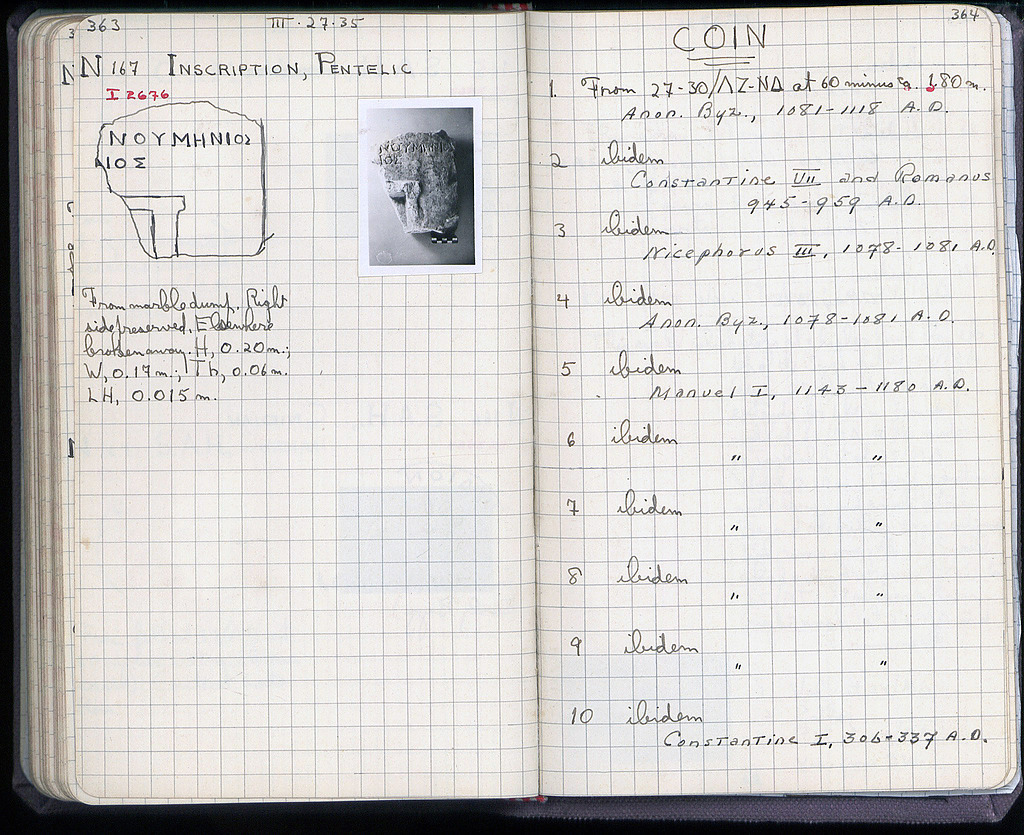 363
III · 27 · 35
N 167 INSCRIPTION, PENTELIC
I 2676
ΝΟΥΜΗΝΙΟΣ
ΙΟΣ
ΝΟΥΜΗΝΙ
ΙΟΣ
From marble dump. Right
side preserved. Elsewhere
broken away. H, 0.20 m.;
W, 0.17 m.; Th, 0.06 m.
LH, 0.015 m.
364
COIN
1. From 27-30/ΛΖ-ΝΔ at 60 minus 1.80 m.
Anon. Byz., 1081-1118 A.D.
2 ibidem
Constantine VII and Romanus
945-959 A.D.
3 ibidem
Nicephorus III, 1078-1081 A.D.
4 ibidem
Anon. Byz., 1078-1081 A.D.
5 ibidem
Manuel I, 1143-1180 A.D.
6 ibidem
" "
7 ibidem
" "
8 ibidem
" "
9 ibidem
" "
10 ibidem
Constantine I, 306-337 A.D.